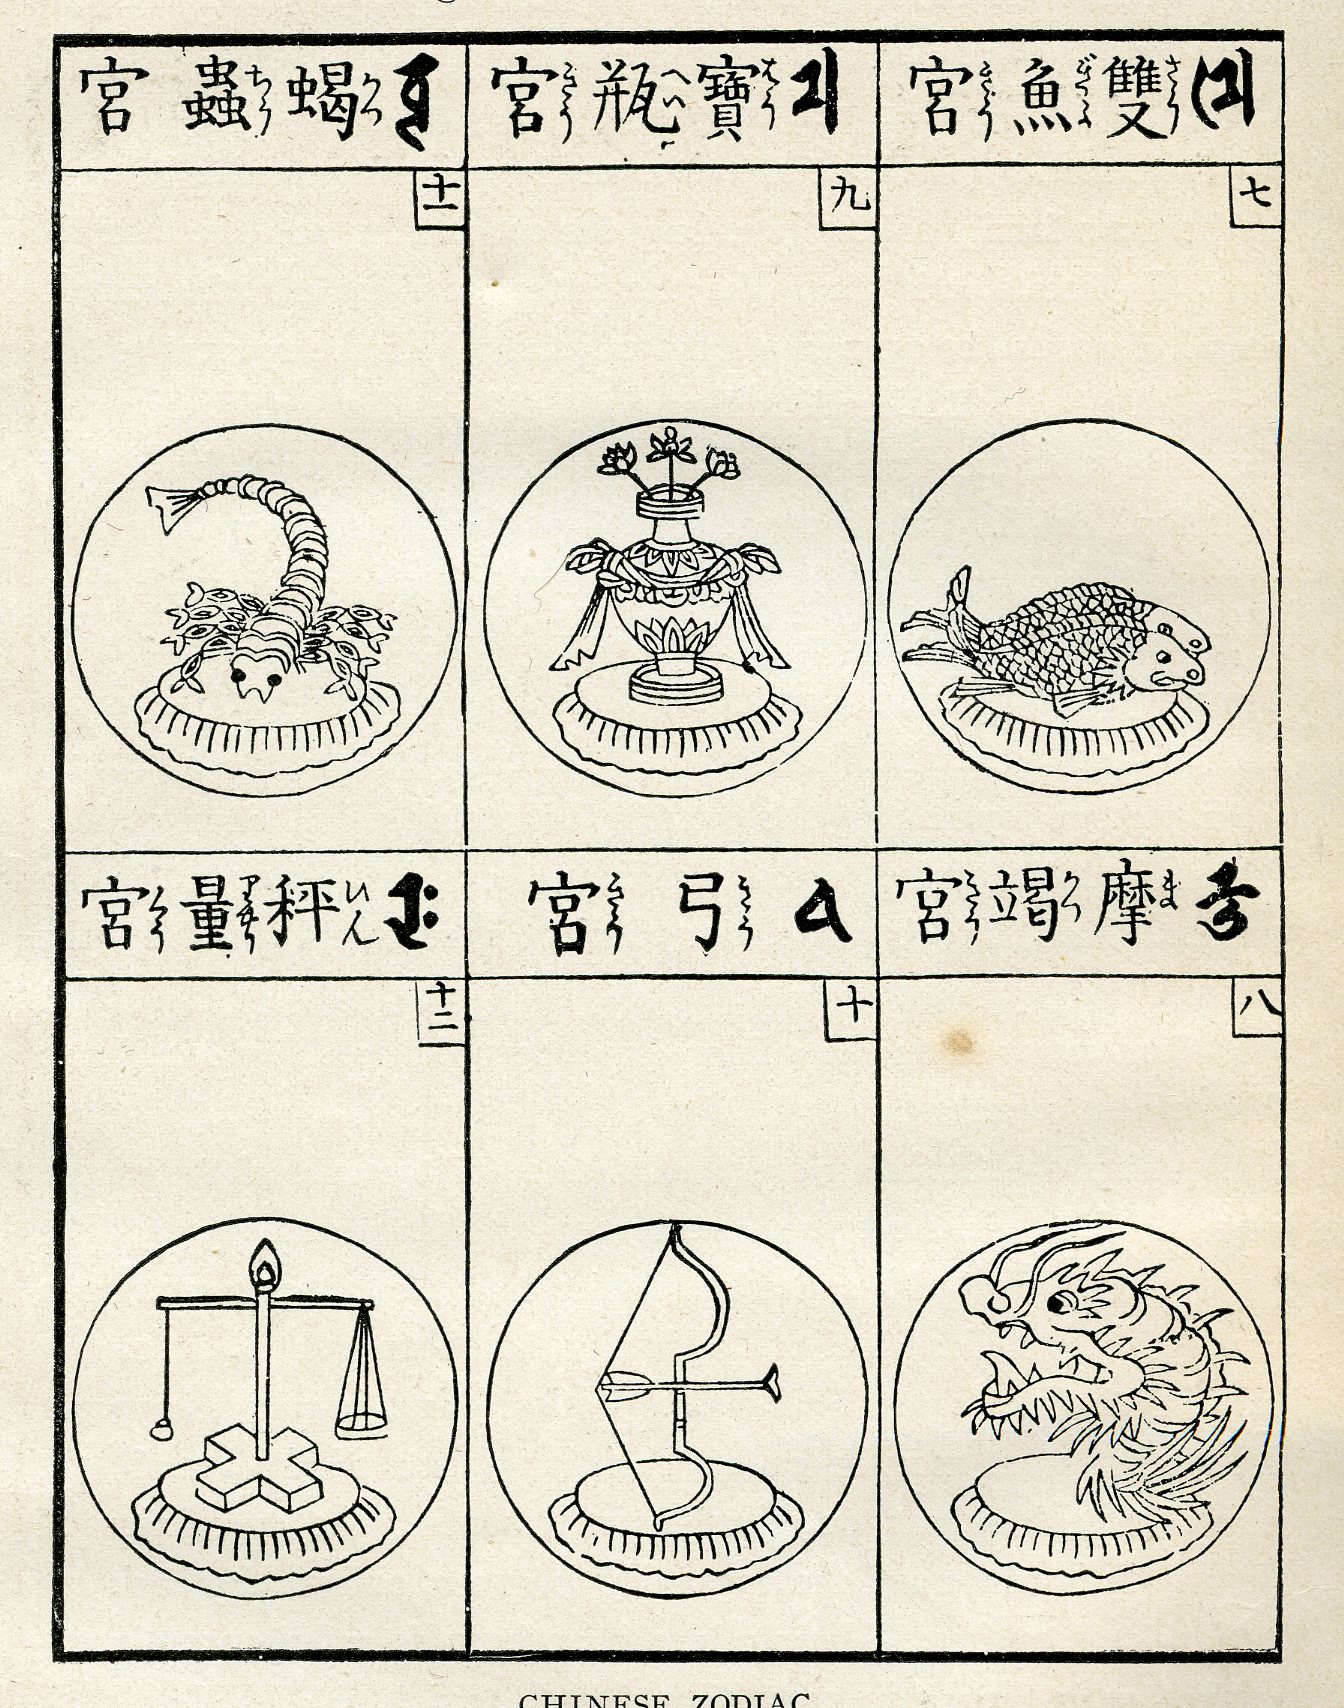 雙魚宮
七
摩竭宮
八
寶瓶宮
九
弓宮
十
蝎蟲宮
十一
秤量宮
十二
CHINESE ZODIAC